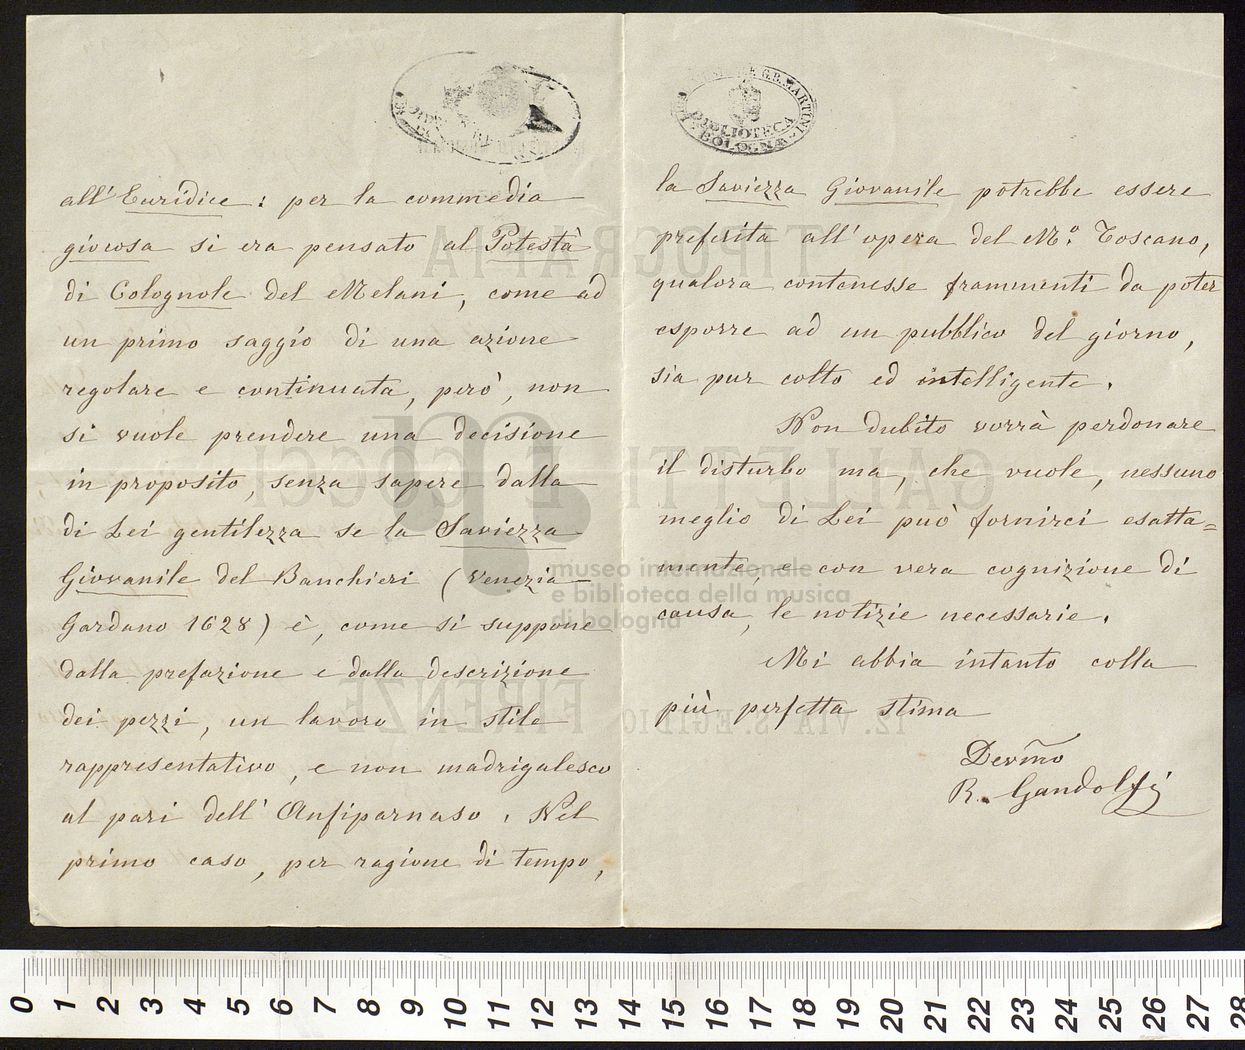 all'Euridice: per la commedia
giocosa si era pensato al Potestà
di Colognole del Melani, come ad
un primo saggio di una azione
regolare e continuata, però, non
si vuole prendere una decisione
in proposito, senza sapere dalla
di Lei gentilezza se la Saviezza
Giovanile del Banchieri (Venezia
Gardano 1628) è, come si suppone
dalla prefazione e dalla descrizione
dei pezzi, un lavoro in stile
rappresentativo, e non madrigalesco
al pari dell'Anfiparnaso. Nel
primo caso, per ragione di tempo,
la Saviezza Giovanile potrebbe essere
preferita all'opera del Mº. Toscano,
qualora contenesse frammenti da poter
esporre ad un pubblico del giorno,
sia pur colto ed intelligente.
Non dubito vorrà perdonare
il disturbo ma, che vuole, nessuno
meglio di Lei può fornirci esatta=
mente, e con vera cognizione di
causa, le notizie necessarie.
Mi abbia intanto colla
più perfetta stima
Devmo
R. Gandolfi
G.B. MARTINI
BIBLIOTECA
BOLOGNA
TIPOGRAFIA
GALLETTI E COCCI
FIRENZE
12. VIA S. EGIDIO
museo internazionale
e biblioteca della musica
di bologna
0 1 2 3 4 5 6 7 8 9 10 11 12 13 14 15 16 17 18 19 20 21 22 23 24 25 26 27 28